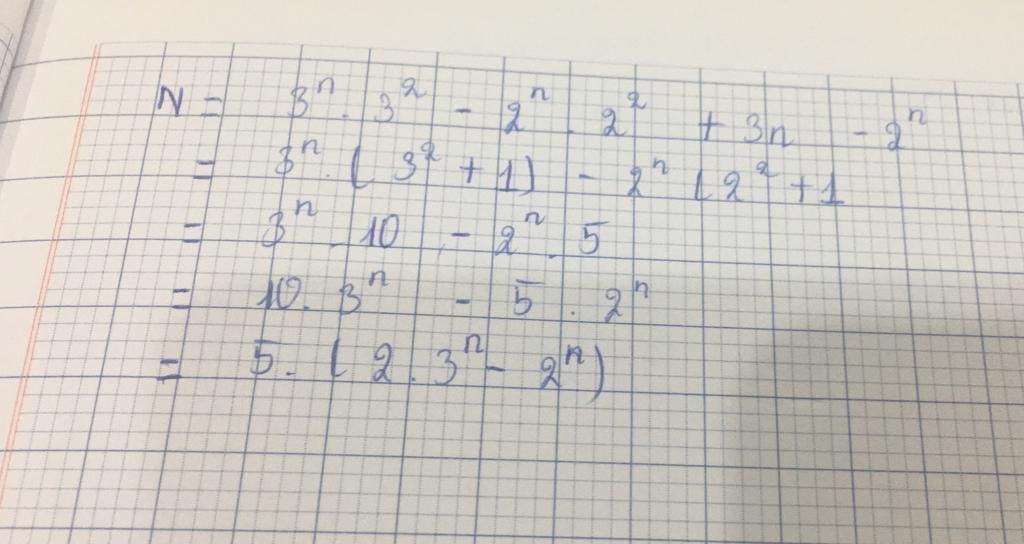 N = 3ⁿ . 3² - 2ⁿ . 2² + 3n - 2ⁿ
= 3ⁿ . ( 3² + 1) - 2ⁿ ( 2² + 1
= 3ⁿ . 10 - 2ⁿ . 5
= 10 . 3ⁿ - 5 . 2ⁿ
= 5 . ( 2 . 3ⁿ - 2ⁿ)